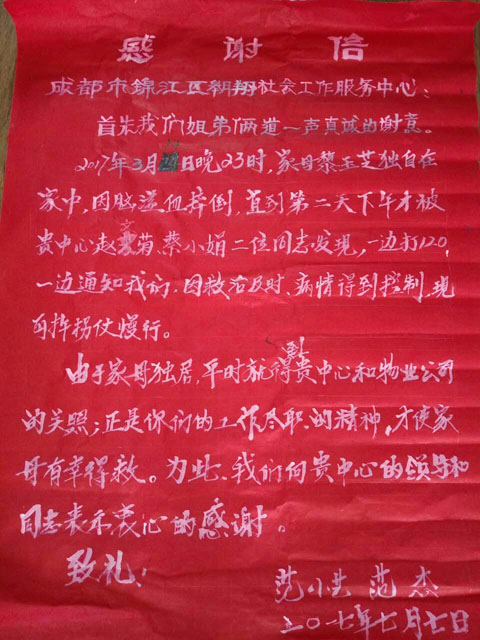 感谢信
成都市锦江区翱翔社会工作服务中心：
首先我们姐弟俩道一声真诚的谢意。
2017年3月日晚23时，家母黎玉芝独自在
家中，因脑溢血摔倒，直到第二天下午才被
贵中心赵菊、蔡小娟二位同志发现，一边打120，
一边通知我们。因救治及时，病情得到控制，现
可拄拐仗慢行。
由于家母独居，平时就得到贵中心和物业公司
的关照；正是你们的工作尽职的精神，才使家
母有幸得救。为此，我们向贵中心的领导和
同志表示衷心的感谢。
致礼！
范小艺 范杰
二〇一七年七月七日